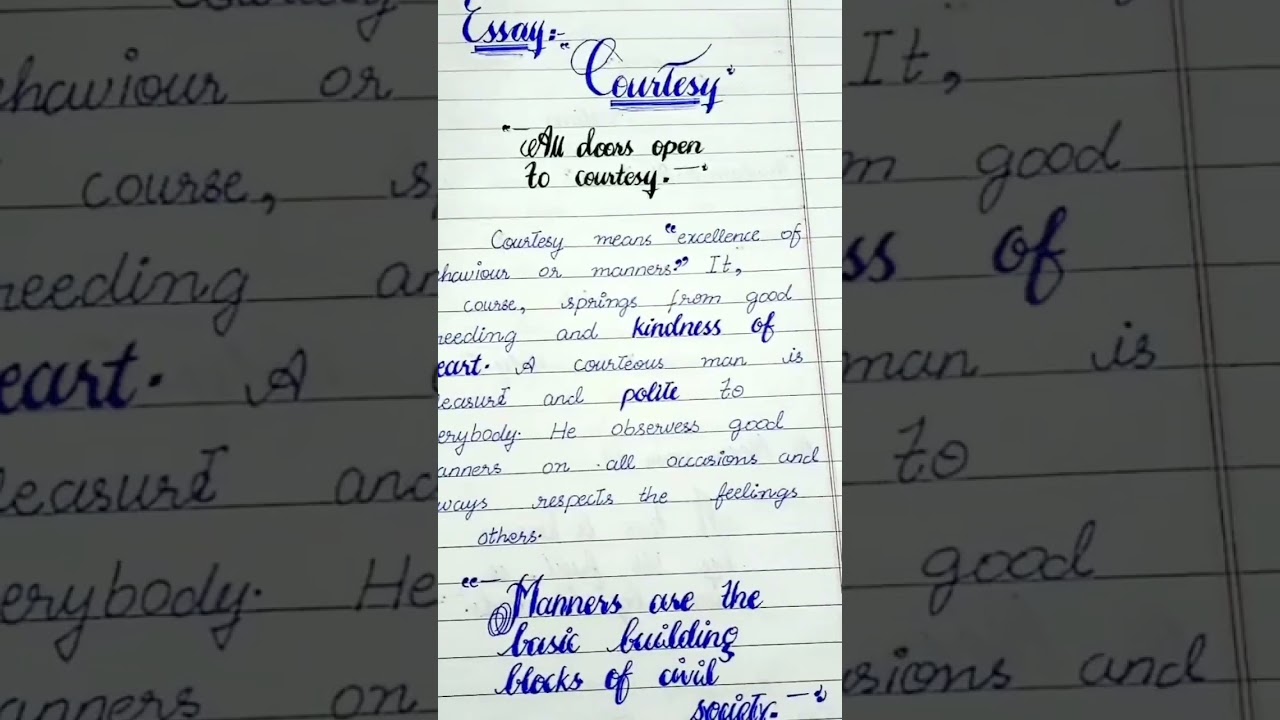 Essay:-
"Courtesy"
"All doors open
to courtesy."
Courtesy means "excellence of
haviour or manners." It,
course, springs from good
reeding and kindness of
eart. A courteous man is
leasure and polite to
erybody. He observess good
anners on all occasions and
ways respects the feelings
others.
"Manners are the
basic building
blocks of civil
society."